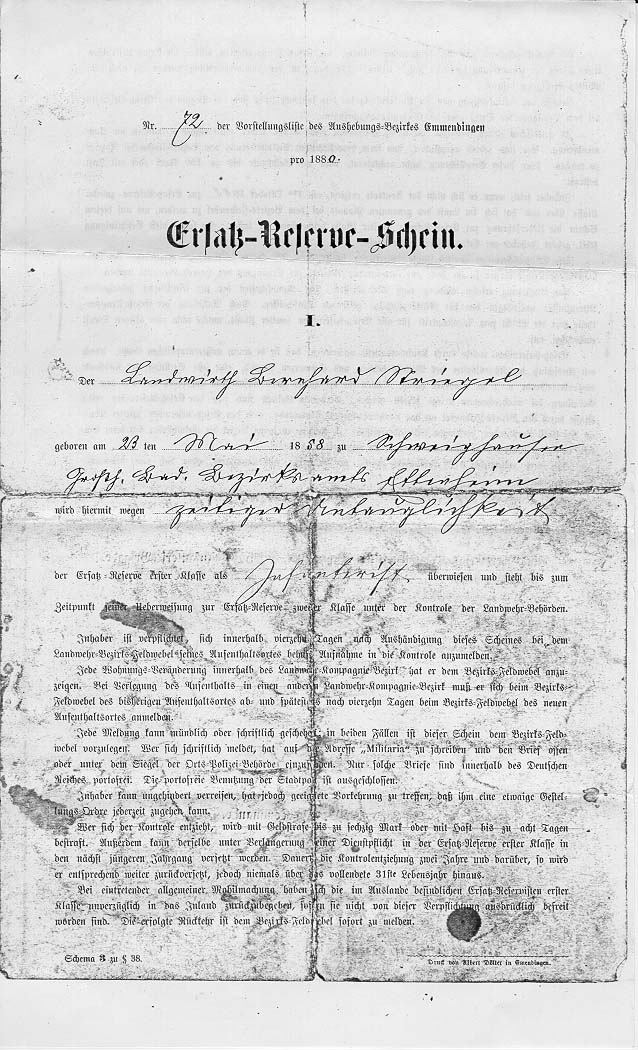 Nr. 72 der Vorstellungsliste des Aushebungs-Bezirkes Emmendingen
pro 1880.
Ersatz-Reserve-Schein.
I.
Der Landwirth Bernhard Striegel
geboren am 23 ten Mai 1858 zu Schweighausen
Grosh. Bad. Bezirksamts Ettenheim
wird hiermit wegen zeitiger Untauglichkeit
der Ersatz-Reserve erster Klasse als Infanterist überwiesen und steht bis zum
Zeitpunkt seiner Ueberweisung zur Ersatz-Reserve zweiter Klasse unter der Kontrole der Landwehr-Behörden.
Inhaber ist verpflichtet, sich innerhalb vierzehn Tagen nach Aushändigung dieses Scheines bei dem
Landwehr-Bezirks-Feldwebel seines Aufenthaltsortes behufs Aufnahme in die Kontrole anzumelden.
Jede Wohnungs-Veränderung innerhalb des Landwehr-Kompagnie-Bezirk hat er dem Bezirks-Feldwebel anzu-
zeigen. Bei Verlegung des Aufenthalts in einen andern Landwehr-Kompagnie-Bezirk muß er sich beim Bezirks-
Feldwebel des bisherigen Aufenthaltsortes ab- und spätestens nach vierzehn Tagen beim Bezirks-Feldwebel des neuen
Aufenthaltsortes anmelden.
Jede Meldung kann mündlich oder schriftlich geschehen; in beiden Fällen ist dieser Schein dem Bezirks-Feld-
webel vorzulegen. Wer sich schriftlich meldet, hat auf die Adresse „Militaria“ zu schreiben und den Brief offen
oder unter dem Siegel der Orts-Polizei-Behörde einzusenden. Nur solche Briefe sind innerhalb des Deutschen
Reiches portofrei. Die portofreie Benutzung der Stadtpost ist ausgeschlossen.
Inhaber kann ungehindert verreisen, hat jedoch geeignete Vorkehrung zu treffen, daß ihm eine etwaige Gestel-
lungs-Ordre jederzeit zugehen kann.
Wer sich der Kontrole entzieht, wird mit Geldstrafe bis zu sechzig Mark oder mit Haft bis zu acht Tagen
bestraft. Außerdem kann derselbe unter Verlängerung seiner Dienstpflicht in der Ersatz-Reserve erster Klasse in
den nächst jüngeren Jahrgang versetzt werden. Dauert die Kontrolentziehung zwei Jahre und darüber, so wird
er entsprechend weiter zurückversetzt, jedoch niemals über das vollendete 31ste Lebensjahr hinaus.
Bei eintretender allgemeiner Mobilmachung haben sich die im Auslande befindlichen Ersatz-Reservisten erster
Klasse unverzüglich in das Inland zurückzubegeben, sofern sie nicht von dieser Verpflichtung ausdrücklich befreit
worden sind. Die erfolgte Rückkehr ist dem Bezirks-Feldwebel sofort zu melden.
Schema 3 zu § 38.
Druck von Albert Dölter in Emendingen.